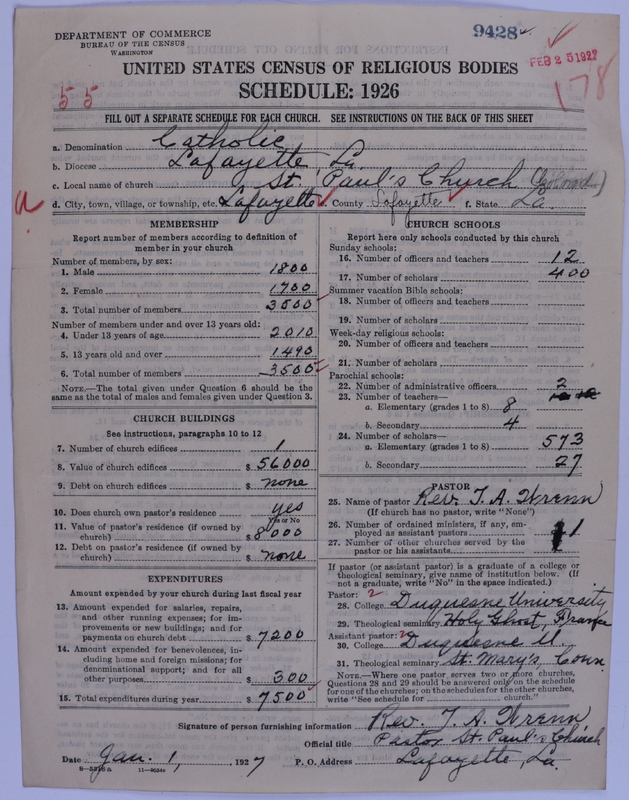 DEPARTMENT OF COMMERCE
BUREAU OF THE CENSUS
WASHINGTON
9428
FEB 25 1927
178
55
UNITED STATES CENSUS OF RELIGIOUS BODIES
SCHEDULE: 1926
FILL OUT A SEPARATE SCHEDULE FOR EACH CHURCH. SEE INSTRUCTIONS ON THE BACK OF THIS SHEET
a. Denomination Catholic
b. Diocese Lafayette, La.
c. Local name of church St. Paul's Church (Colored)
d. City, town, village, or township, etc. Lafayette e. County Lafayette f. State La.
MEMBERSHIP
Report number of members according to definition of
member in your church
Number of members, by sex:
1. Male 1800
2. Female 1700
3. Total number of members 3500
Number of members under and over 13 years old:
4. Under 13 years of age 2010
5. 13 years old and over 1490
6. Total number of members 3500
NOTE.—The total given under Question 6 should be
same as the total of males and females given under Question 3.
CHURCH BUILDINGS
See instructions, paragraphs 10 to 12
7. Number of church edifices 1
8. Value of church edifices $ 56000
9. Debt on church edifices $ none
10. Does church own pastor's residence yes
Yes or No
11. Value of pastor's residence (if owned by
church) $ 8000
12. Debt on pastor's residence (if owned by
church) $ none
EXPENDITURES
Amount expended by your church during last fiscal year
13. Amount expended for salaries, repairs,
and other running expenses; for im-
provements or new buildings; and for
payments on church debt $ 7200
14. Amount expended for benevolences, in-
cluding home and foreign missions; for
denominational support; and for all
other purposes $ 300
15. Total expenditures during year $ 7500
CHURCH SCHOOLS
Report here only schools conducted by this church
Sunday schools:
16. Number of officers and teachers 12
17. Number of scholars 400
Summer vacation Bible schools:
18. Number of officers and teachers
19. Number of scholars
Week-day religious schools:
20. Number of officers and teachers
21. Number of scholars
Parochial schools:
22. Number of administrative officers 2
23. Number of teachers—
a. Elementary (grades 1 to 8) 8
b. Secondary 4
24. Number of scholars—
a. Elementary (grades 1 to 8) 573
b. Secondary 27
PASTOR
25. Name of pastor Rev. J. A. Wrenn
(If church has no pastor, write "None")
26. Number of ordained ministers, if any, em-
ployed as assistant pastors 1
27. Number of other churches served by the
pastor or his assistants
If pastor (or assistant pastor) is a graduate of a college or
theological seminary, give name of institution below. (If
not a graduate, write "No" in the space indicated.)
Pastor: 2
28. College Duquesne University
29. Theological seminary Holy Ghost, France
Assistant pastor: 2
30. College Duquesne U.
31. Theological seminary St. Mary's, Conn
NOTE.—Where one pastor serves two or more churches,
Questions 28 and 29 should be answered only on the schedule
for one of the churches; on the schedules for the other churches,
write "See schedule for church."
Signature of person furnishing information Rev. J. A. Wrenn
Official title Pastor St. Paul's Church
Date Jan. 1, 1927 P. O. Address Lafayette, La.